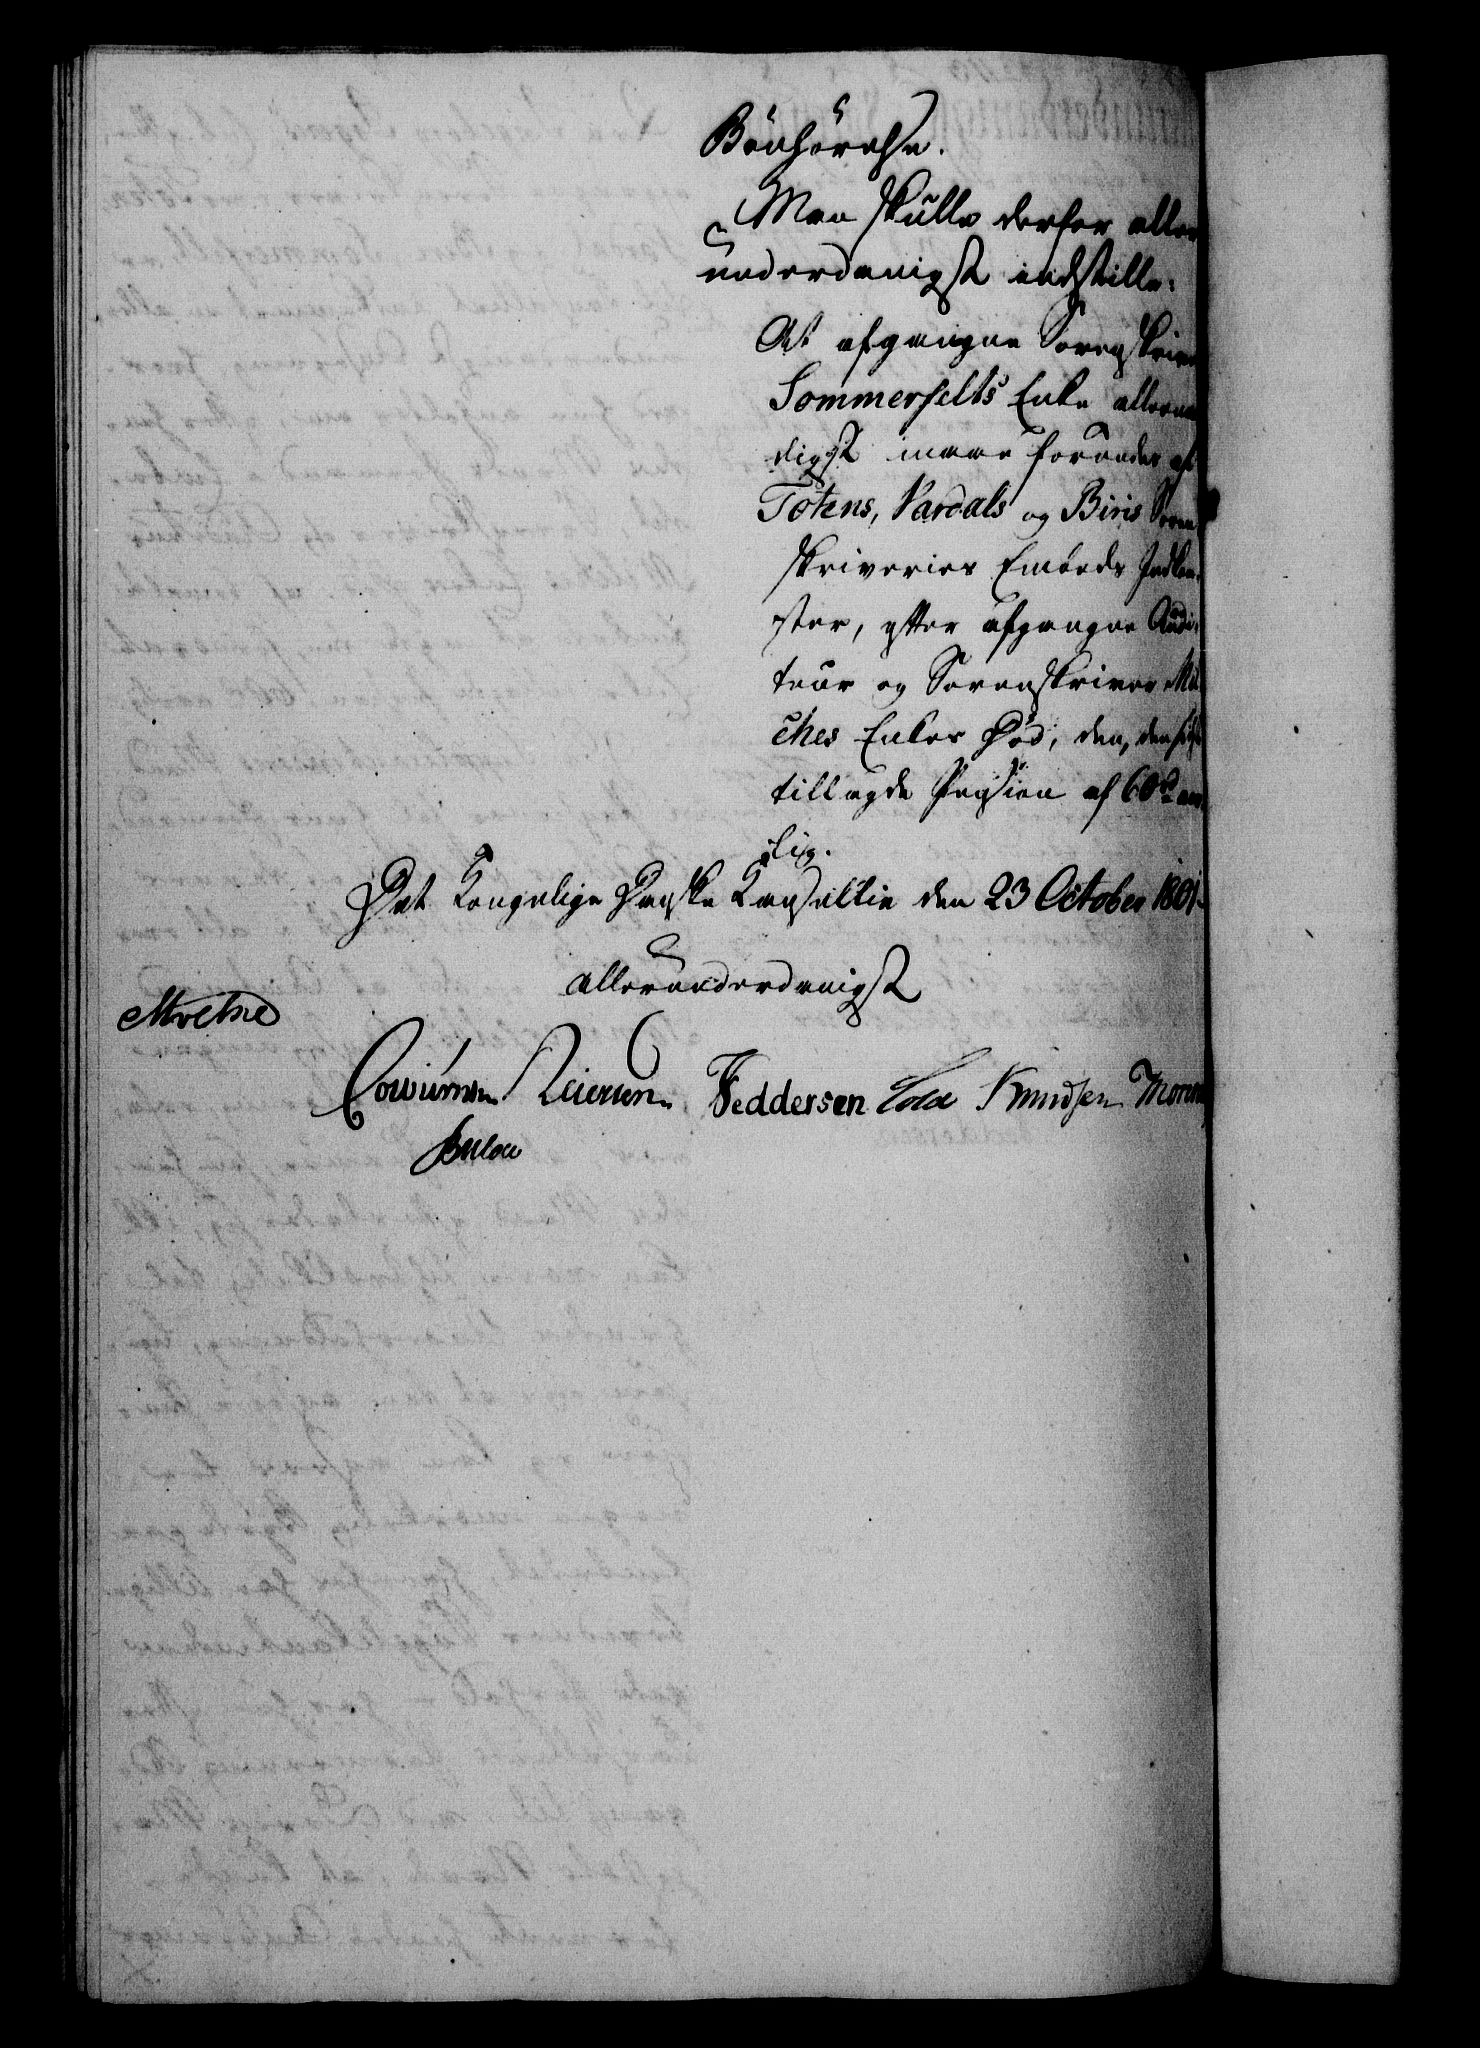 Bönhörelse.
Man skulle derfor aller
underdanigst indstille:
At afgangne Sorenskriver
Sommerfelts Enke allernaa
digst maae forundes af
Totens, Vardals og Biris Soren
skriveries Embeds Indkom
ster, efter afgangne Audi
teur og Sorenskriver Mu
ches Enkes Död, den, denne
tillagde Pension af 60 rd aar
lig.
Det Kongelige Danske Kancellie den 23 October 1801.
allerunderdanigst
Mretne
Cowiumsn Reiersen Feddersen Cold Knudsen Monrad
Bulow